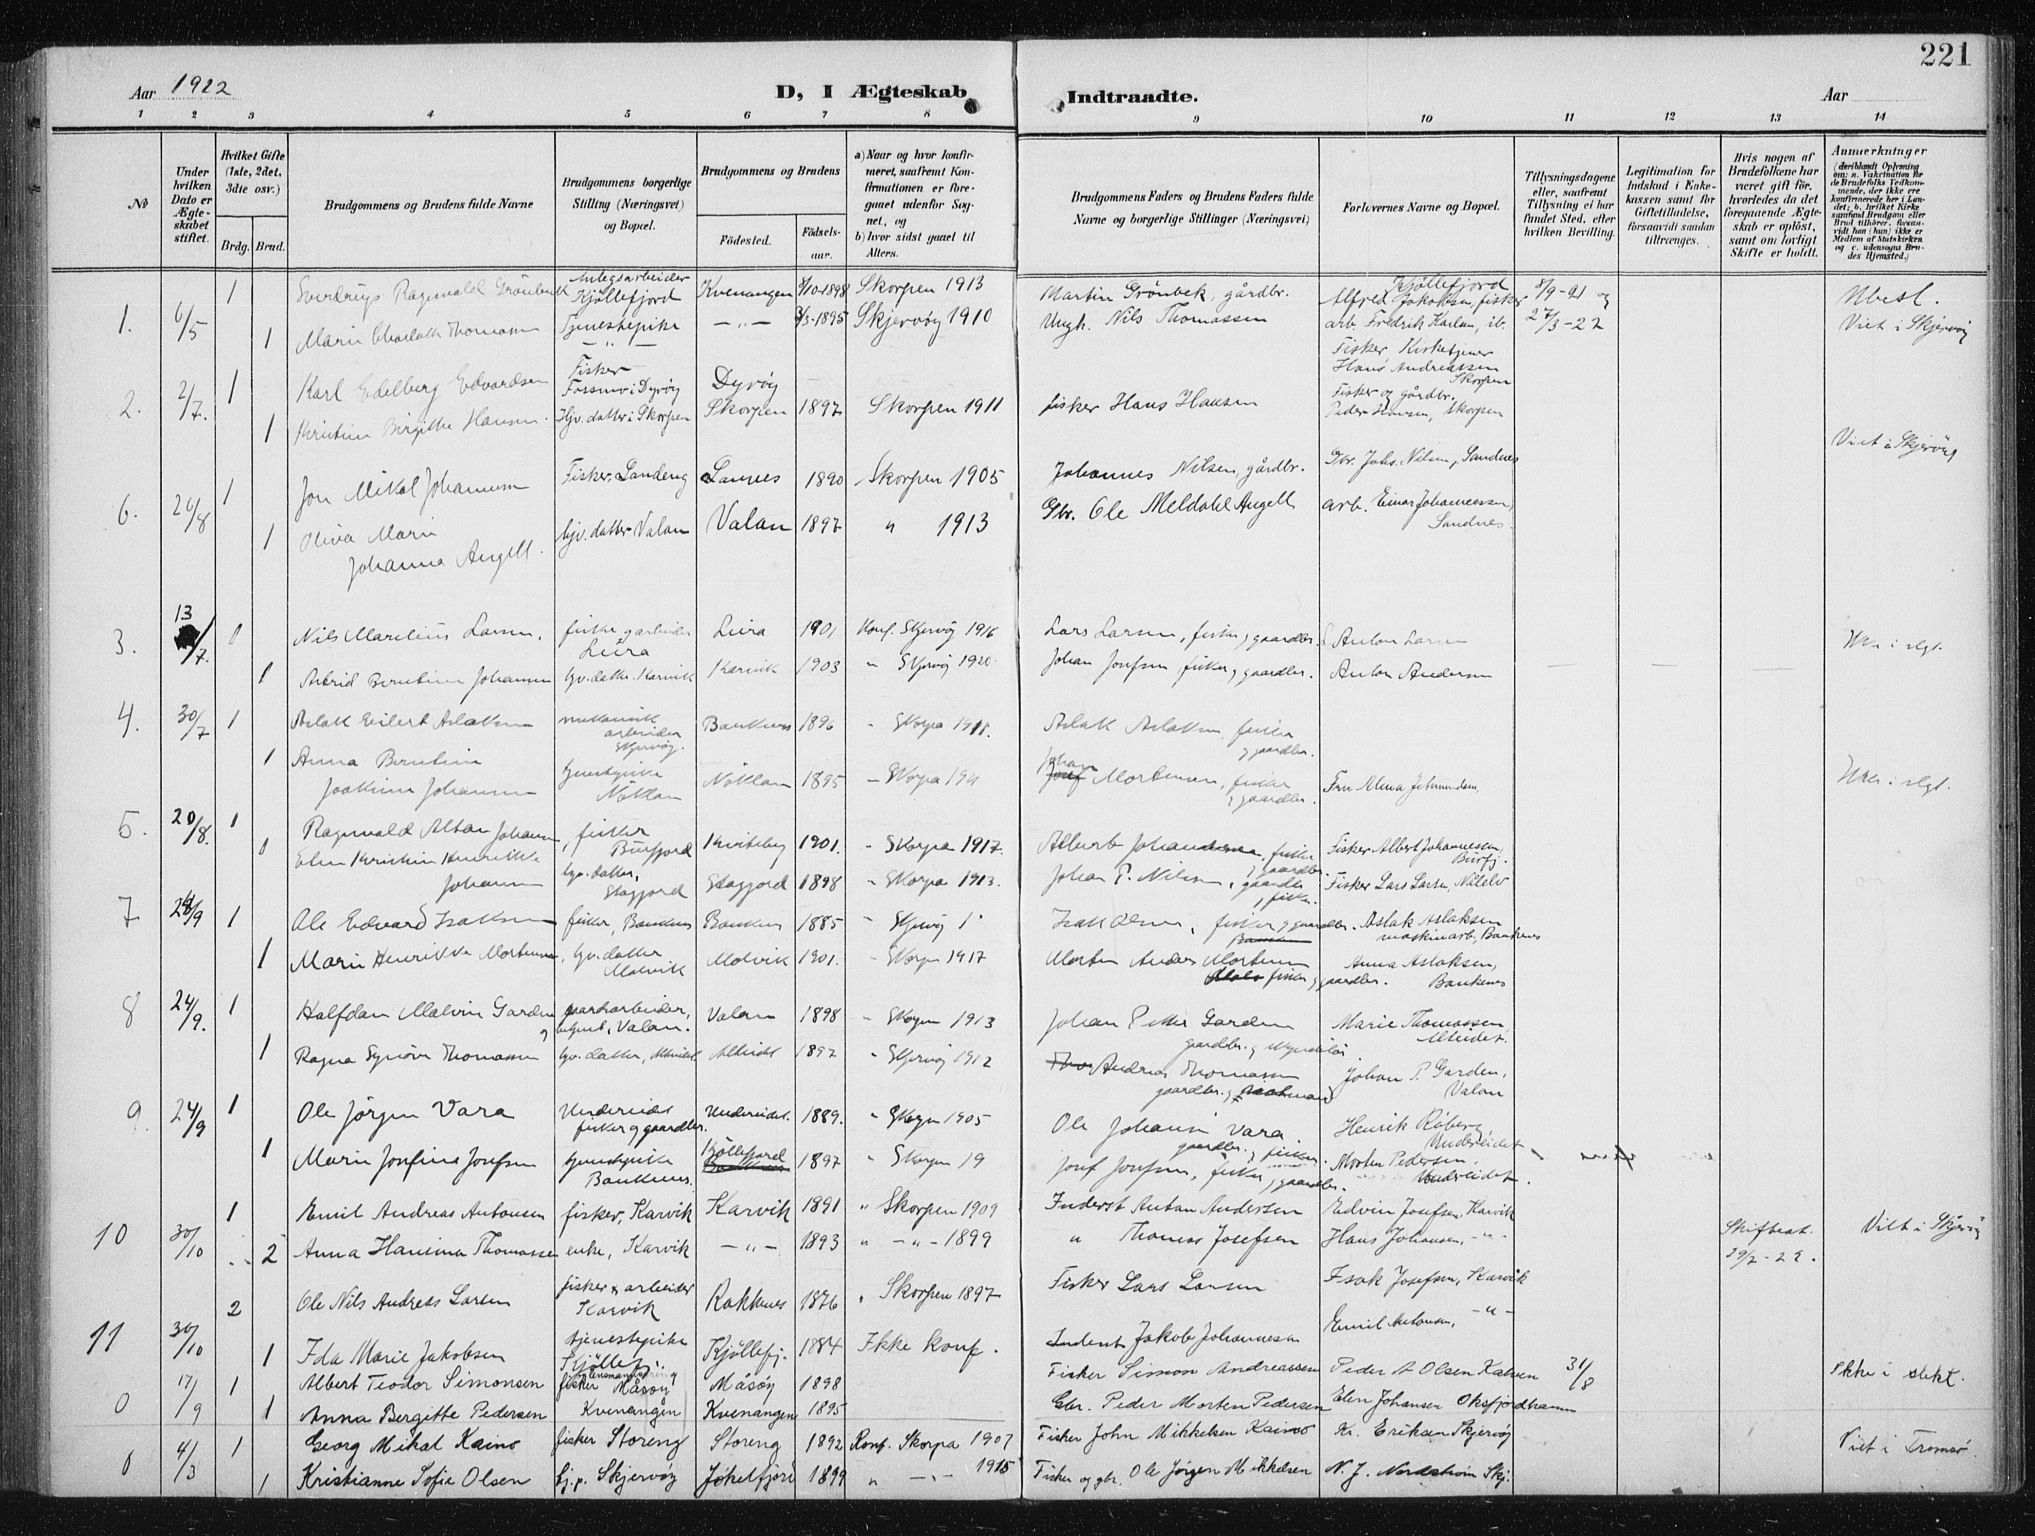 221
Aar 1922
D, I Ægteskab
Indtraadte.
Aar
1 2 3 4 5 6 7 8 9 10 11 12 13 14
No
Under hvilken Dato er Ægteskabet stiftet.
Hvilket Gifte (1ste, 2det, 3die osv.)
Brdg. Brud.
Brudgommens og Brudens fulde Navne
Brudgommens borgerlige Stilling (Næringsvei) og Bopæl.
Brudgommens og Brudens
Födested.
Födselsaar.
a) Naar og hvor konfirmeret, saafremt Konfirmationen er foregaaet udenfor Sognet, og
b) hvor sidst gaaet til Alters.
Brudgommens Faders og Brudens Faders fulde Navne og borgerlige Stillinger (Næringsvei)
Forlovernes Navne og Bopæl.
Tillysningsdagene eller, saafremt Tillysning ei har fundet Sted, efter hvilken Bevilling.
Legitimation for Indskud i Enkekassen samt for Giftetilladelse, forsaavidt saadan tiltrænges.
Hvis nogen af Brudefolkene har været gift för, hvorledes da det foregaaende Ægteskab er oplöst, samt om lovligt Skifte er holdt.
Anmærkninger
1. 6/5 1 Sverdrup Ragnvald Grönbek Anlegsarbeider Kjöllefjord Kvenangen 8/10-1898 Skorpen 1913 Martin Grönbek, gårdbr. Alfred Jakobsen, fisker Kjöllefjord 8/9-21 og Ubesl.
1 Marie Charlotte Thomassen Tjenestepike — " — — " — 3/3-1895 Skjervöy 1910 Ungk. Nils Thomassen arb. Fredrik Karlsen, ib. 27/3-22 Viet i Skjervöy
2. 2/7. 1 Karl Edelberg Edvardsen Fisker Forsmo i Dyröy Dyröy Fisker Kirketjener Hans Andreassen Skorpen
1 Kristine Birgitte Hansen. Skorpen 1897 Skorpen 1911 fisker Hans Hansen Fisker og gårdbr. Peder Hansen, Skorpen
Viet i Skjervöy
6. 26/8 1 Jon Mikal Johannesen Fisker, Sandeng 1890 Skorpen 1905 Johannes Nilsen, gårdbr. Gbr. Johs. Nilsen, Sandnes
1 Oliva Marie Johanna Angell. gv. datter Valan Valan 1897 " 1913 Gbr. Ole Meldahl Angell arb. Einar Johannessen, Sandnes.
3. 13/7. 1 Nils Marelius Larsen, fisker og arbeider Leira Leira 1901 Konf. Skjervöy 1916 Lars Larsen, fisker og gaardbr. Anton Larsen
1 Astrid Berntine Johansen gv. datter. Karvik Karvik 1903 " Skjervöy 1920. Johan Josefsen fisker og gaardbr. Anton Andersen Ikke i slgt.
4. 30/7 1 Aslak Eilert Aslaksen mekanisk arbeider Skjervöy. Baukenes 1896 " Skorpa 1911. Aslak Aslaksen fisker og gaardbr.
1 Anna Berntine Joakime Johansen tjenestepike Nöklan Nöklan 1895 — Skorpa 191 Johan Mortensen, fisker og gaardbr. Ikke i slgt.
5. 20/8. 1 Ragnvald Alban Johansen, fisker Burfjord Kviteberg 1901. " Skorpa 1917. Albert Johannesen, fisker og gaardbr. Fisker Albert Johannessen, Burfj.
1 Elen Kristine Henrikke Johansen gv. datter, Stagfjord 1898 " Skorpa 1913. Johan P. Nilsen, gaardbr. og fisker. Fisker Lars Larsen,
7 24/9 1 Ole Edvard Isaksen fisker, Baukenes Baukenes 1885 " Skjervöy Isak Olsen, fisker og gaardbr. Aslak Aslaksen maskinarb. Baukenes
1 Marie Henrikke Mortensen, gv. datter Molvik Molvik 1901. " Skorpen 1917 Morten Anders Mortensen fisker og gaardbr. Anna Aslaksen, Baukenes
8 24/9. 1 Halfdan Malvin Garden gaardsarbeider, Valan. Valan 1898 " Skorpen 1913 Johan Petter Garden gaardbr. og Marie Thomassen, Alteidet.
1 Ragna Synöve Thomassen gv. datter, Alteidet Alteidet 1892 " Skjervöy 1912 Andreas Thomassen gaardbr. og Johan P. Garden, Valan
9. 24/9 1 Ole Jörgen Vara Undereidet fisker og gaardbr. Undereidet. 1889. " Skorpen 1905 Ole Johansen Vara gaardbr. og fisker. Henrik Röberg Undereidet
1 Marie Josefine Josefsen tjenestepike Baukenes. Kjöllefjord 1897 " Skorpen 19 Josef Josefsen, fisker og gaardbr. Morten Pedersen, Undereidet.
10 30/10 1 Emil Andreas Antonsen fisker, Karvik Karvik 1891 " Skorpen 1909 Inderst Anton Andersen Edvin Josefsen, Karvik
2 Anna Hansina Thomassen enke, Karvik — " — 1893 " — " — 1899 " Thomas Josefsen Hans Johansen, — " — Skifteat. 29/2-22. Viet i Skjervöy
11 30/10 2 Ole Nils Andreas Larsen fisker & arbeider Karvik Rakkenes 1876 " Skorpen 1897 Fisker Lars Larsen Isak Josefsen, Karvik
1 Ida Marie Jakobsen tjenestepike Kjöllefj. Kjöllefj. 1884 Ikke konf. Inderst Jakob Johannesen Emil Antonsen, — " —
0 17/9 1 Albert Teodor Simonsen fisker Måsöy Måsöy 1898 Fisker Simon Andreassen Peder A Olsen 31/8 Ikke i slekt.
1 Anna Bergitte Pedersen Kvenangen Kvenangen 1895 Gbr. Peder Morten Pedersen Elen Johansen Oksfjordhamn
0 4/3 1 Georg Mikal Kainö fisker Storeng Storeng 1892 Konf. Skorpa 1907 Fisker John Mikkelsen Kainö Kr. Eriksen Skjervöy Viet i Tromsö.
1 Kristianne Sofie Olsen tj.p. Skjervöy Jökelfjord 1899 " — " — 1915 Fisker og gbr. Ole Jörgen Mikkelsen N. J. Nordström Skj.